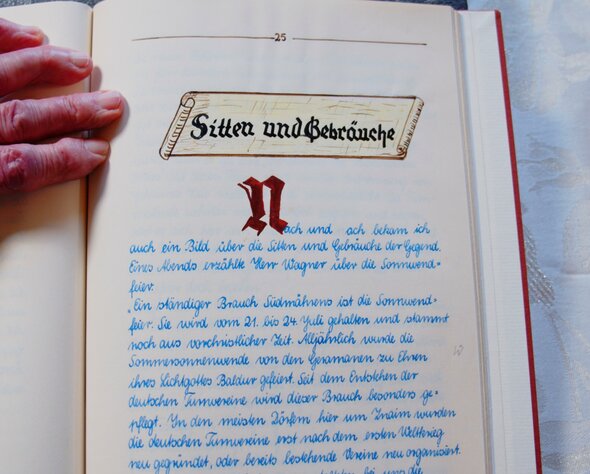 25
Sitten und Gebräuche
Nach und ach bekam ich
auch ein Bild über die Sitten und Gebräuche der Gegend.
Eines Abends erzählte Herr Wagner über die Sonnwend=
feier.
"Ein ständiger Brauch Südmährens ist die Sonnwend=
feier. Sie wird vom 21. bis 24. Juli gehalten und stammt
noch aus vorchristlicher Zeit. Alljährlich wurde die
Sommersonnenwende von den Germanen zu Ehren
ihres Lichtgottes Baldur gefeiert. Seit dem Entstehen der
deutschen Turnvereine wird dieser Brauch besonders ge=
pflegt. In den meisten Dörfern hier um Znaim wurden
die deutschen Turnvereine erst nach dem ersten Weltkrieg
neu gegründet, oder bereits bestehende Vereine neu organisiert.
bei uns die